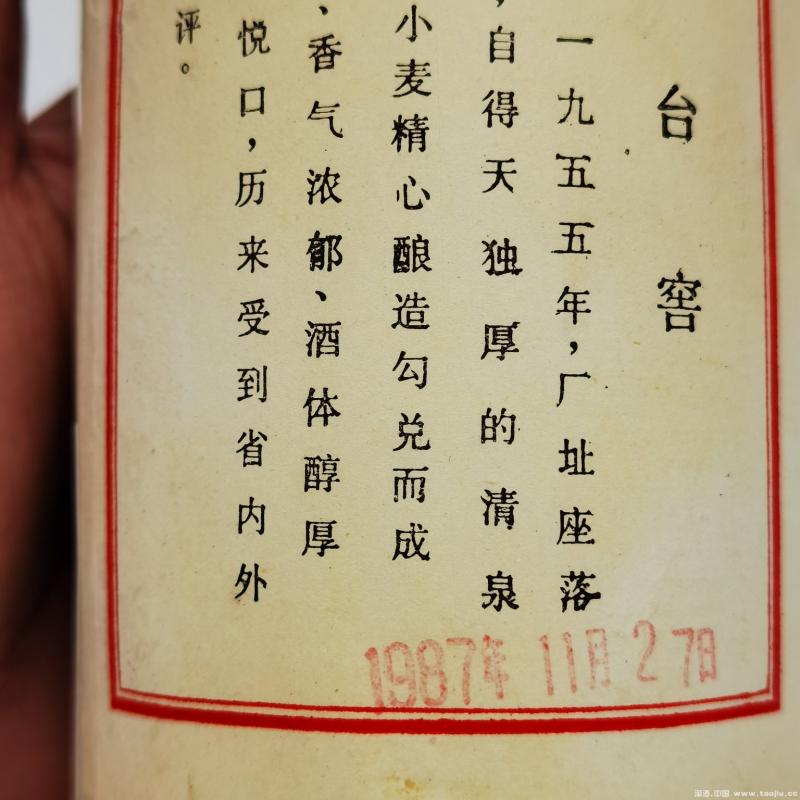 台窖
一九五五年，厂址座落
，自得天独厚的清泉
小麦精心酿造勾兑而成
、香气浓郁、酒体醇厚
悦口，历来受到省内外
评。
1987年 11月 27日
淘酒.中国 www.taojiu.cc